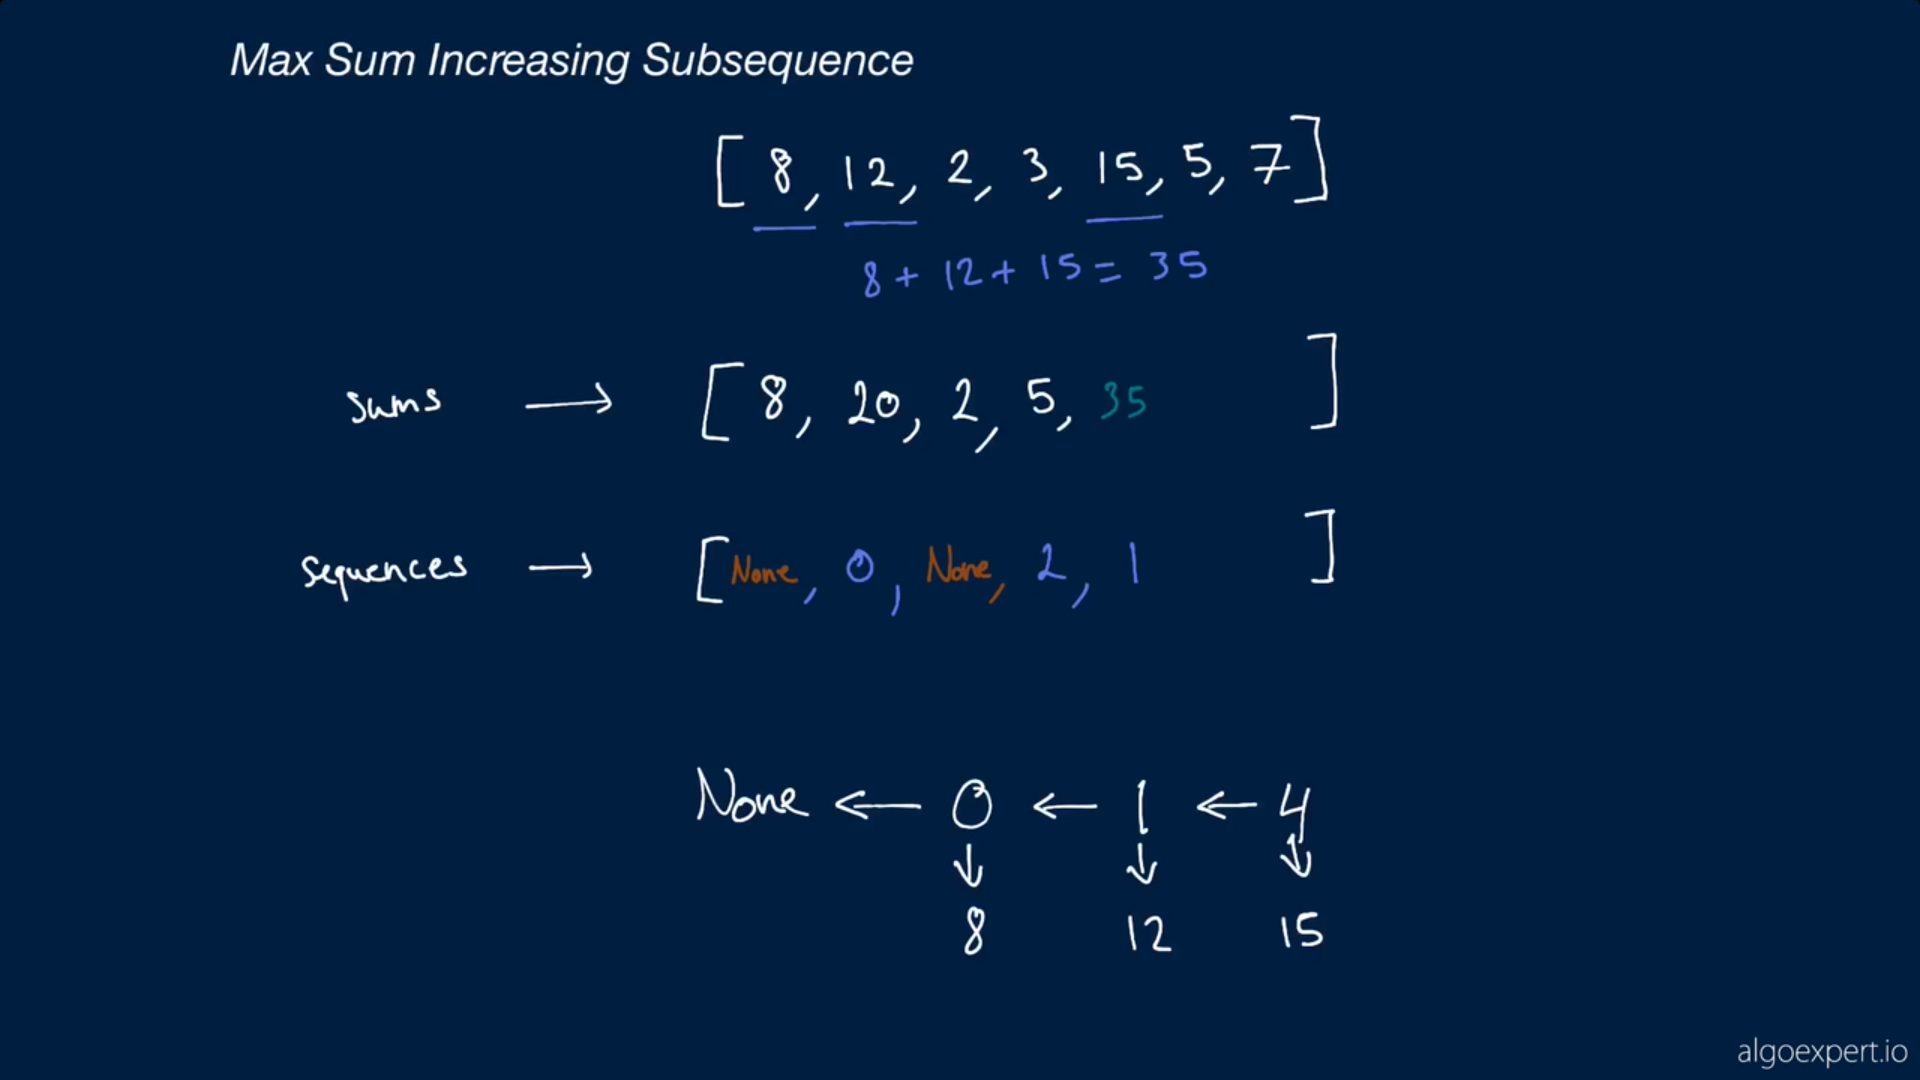 Max Sum Increasing Subsequence
[ 8, 12, 2, 3, 15, 5, 7 ]
8 + 12 + 15 = 35
sums → [ 8, 20, 2, 5, 35 ]
sequences → [ None, 0, None, 2, 1 ]
None ← 0 ← 1 ← 4
↓ ↓ ↓
8 12 15
algoexpert.io